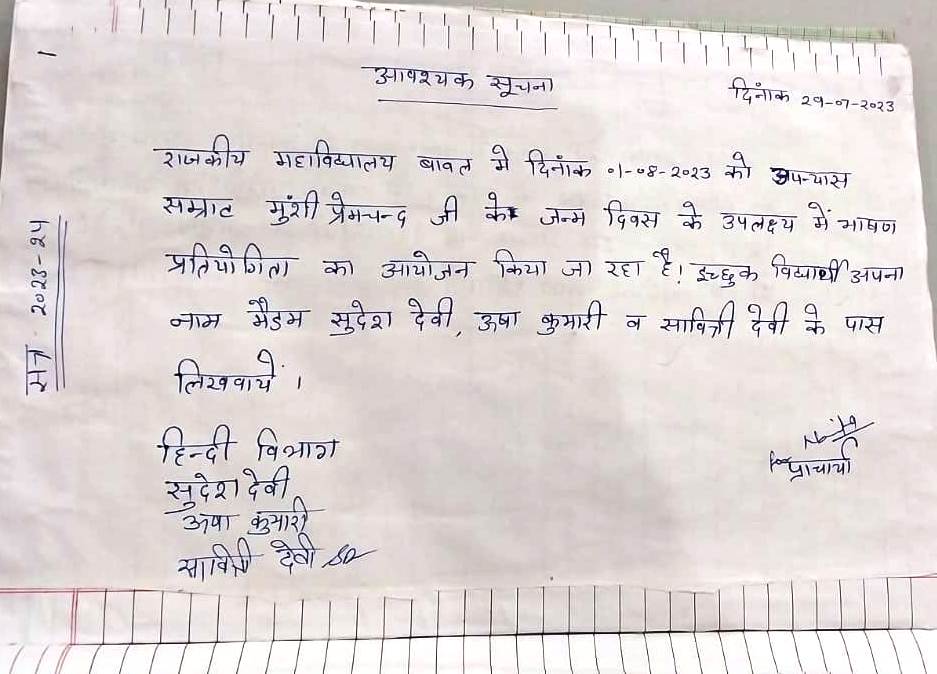 आवश्यक सूचना
दिनांक 29-07-2023
राजकीय महाविद्यालय बावल मे दिनांक 01-08-2023 को उपन्यास
सम्राट मुंशी प्रेमचन्द जी के जन्म दिवस के उपलक्ष्य में भाषण
प्रतियोगिता का आयोजन किया जा रहा है! इच्छुक विद्यार्थी अपना
नाम मैडम सुदेश देवी, ऊषा कुमारी व सावित्री देवी के पास
लिखवायें ।
हिन्दी विभाग
सुदेश देवी
ऊषा कुमारी
सावित्री देवी
for प्राचार्या
सत्र 2023-24